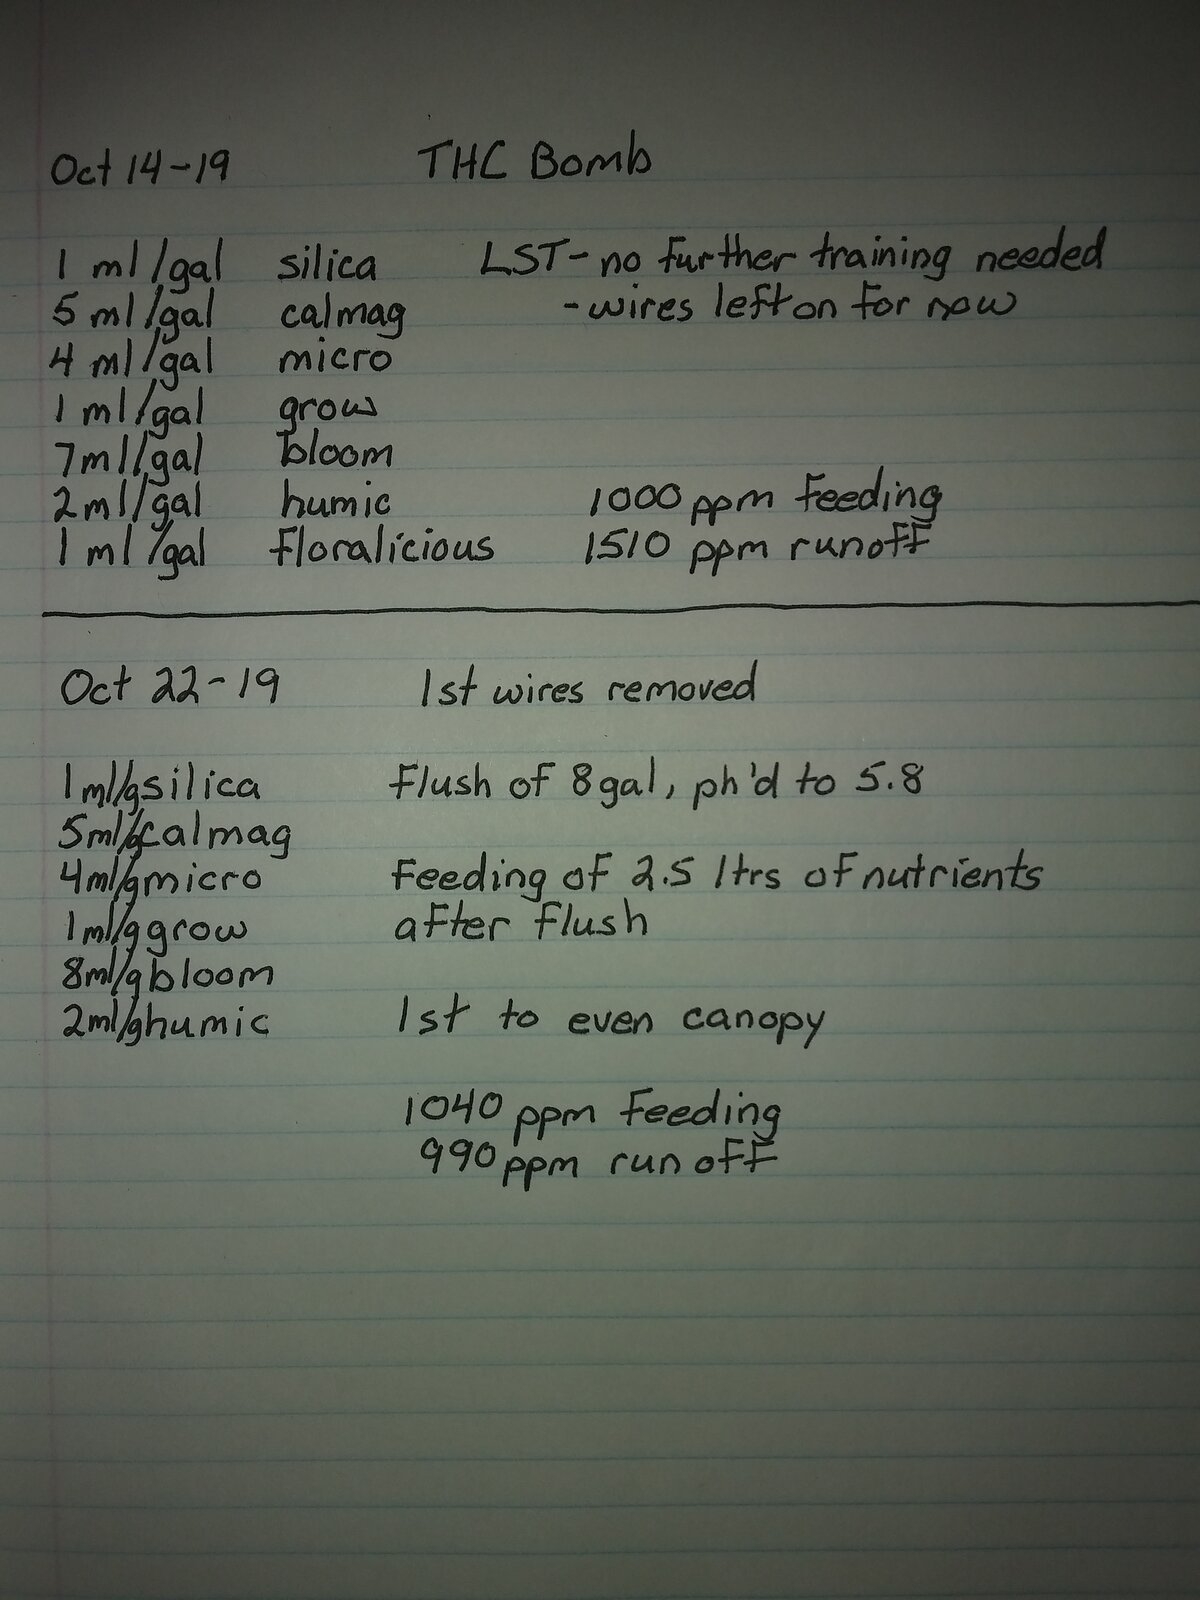 Oct 14-19 THC Bomb
1 ml/gal silica LST- no further training needed
5 ml/gal calmag -wires left on for now
4 ml/gal micro
1 ml/gal grow
7ml/gal bloom
2ml/gal humic 1000 ppm feeding
1 ml/gal floralicious 1510 ppm runoff
Oct 22-19 1st wires removed
1ml/g silica Flush of 8 gal, ph'd to 5.8
5ml/g calmag
4ml/g micro Feeding of 2.5 ltrs of nutrients
1ml/g grow after flush
8ml/g bloom
2ml/g humic 1st to even canopy
1040 ppm feeding
990 ppm runoff